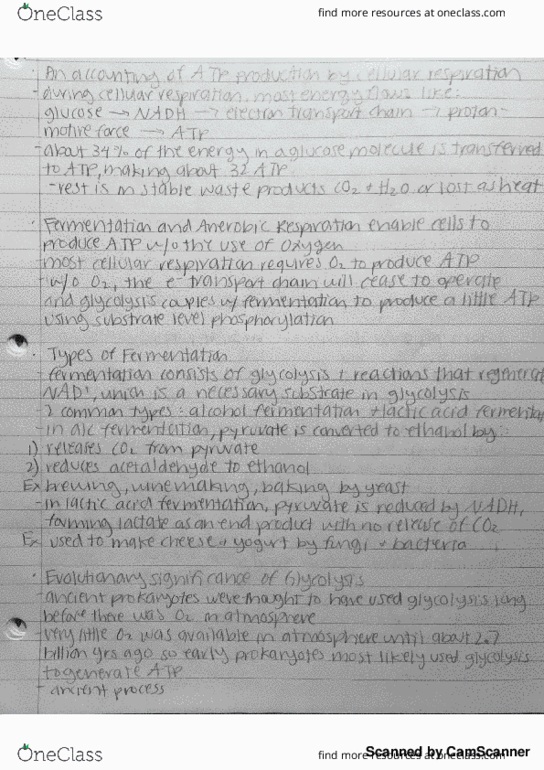 OneClass
find more resources at oneclass.com
· An accounting of ATP production by cellular respiration
- during cellular respiration, most energy flows like:
glucose → NADH → electron transport chain → proton-
motive force → ATP
- about 34% of the energy in a glucose molecule is transferred
to ATP, making about 32 ATP
- rest is in stable waste products CO2 + H2O or lost as heat
· Fermentation and Anerobic Respiration enable cells to
produce ATP w/o the use of Oxygen
- most cellular respiration requires O2 to produce ATP
- w/o O2, the e- transport chain will cease to operate
and glycolysis couples w/ fermentation to produce a little ATP
using substrate level phosphorylation
· Types of Fermentation
- fermentation consists of glycolysis + reactions that regenerat
NAD+, which is a necessary substrate in glycolysis
- 2 common types: alcohol fermentation + lactic acid fermenta
- in alc fermentation, pyruvate is converted to ethanol by:
1) releases CO2 from pyruvate
2) reduces acetaldehyde to ethanol
Ex brewing, winemaking, baking by yeast
- in lactic acid fermentation, pyruvate is reduced by NADH,
forming lactate as an end product with no release of CO2
Ex used to make cheese + yogurt by fungi + bacteria
· Evolutionary significance of Glycolysis
- ancient prokaryotes were thought to have used glycolysis long
before there was O2 in atmosphere
- very little O2 was available in atmosphere until about 2.7
billion yrs ago so early prokaryotes most likely used glycolysis
to generate ATP
- ancient process
OneClass
find more resources at oneclass.com
Scanned by CamScanner